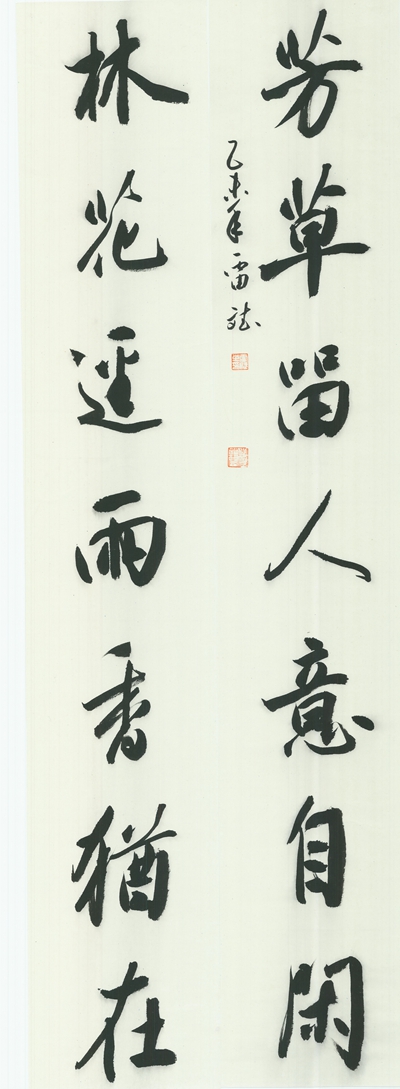 芳草留人意自閑
乙未年雷斌
林花逕雨香猶在